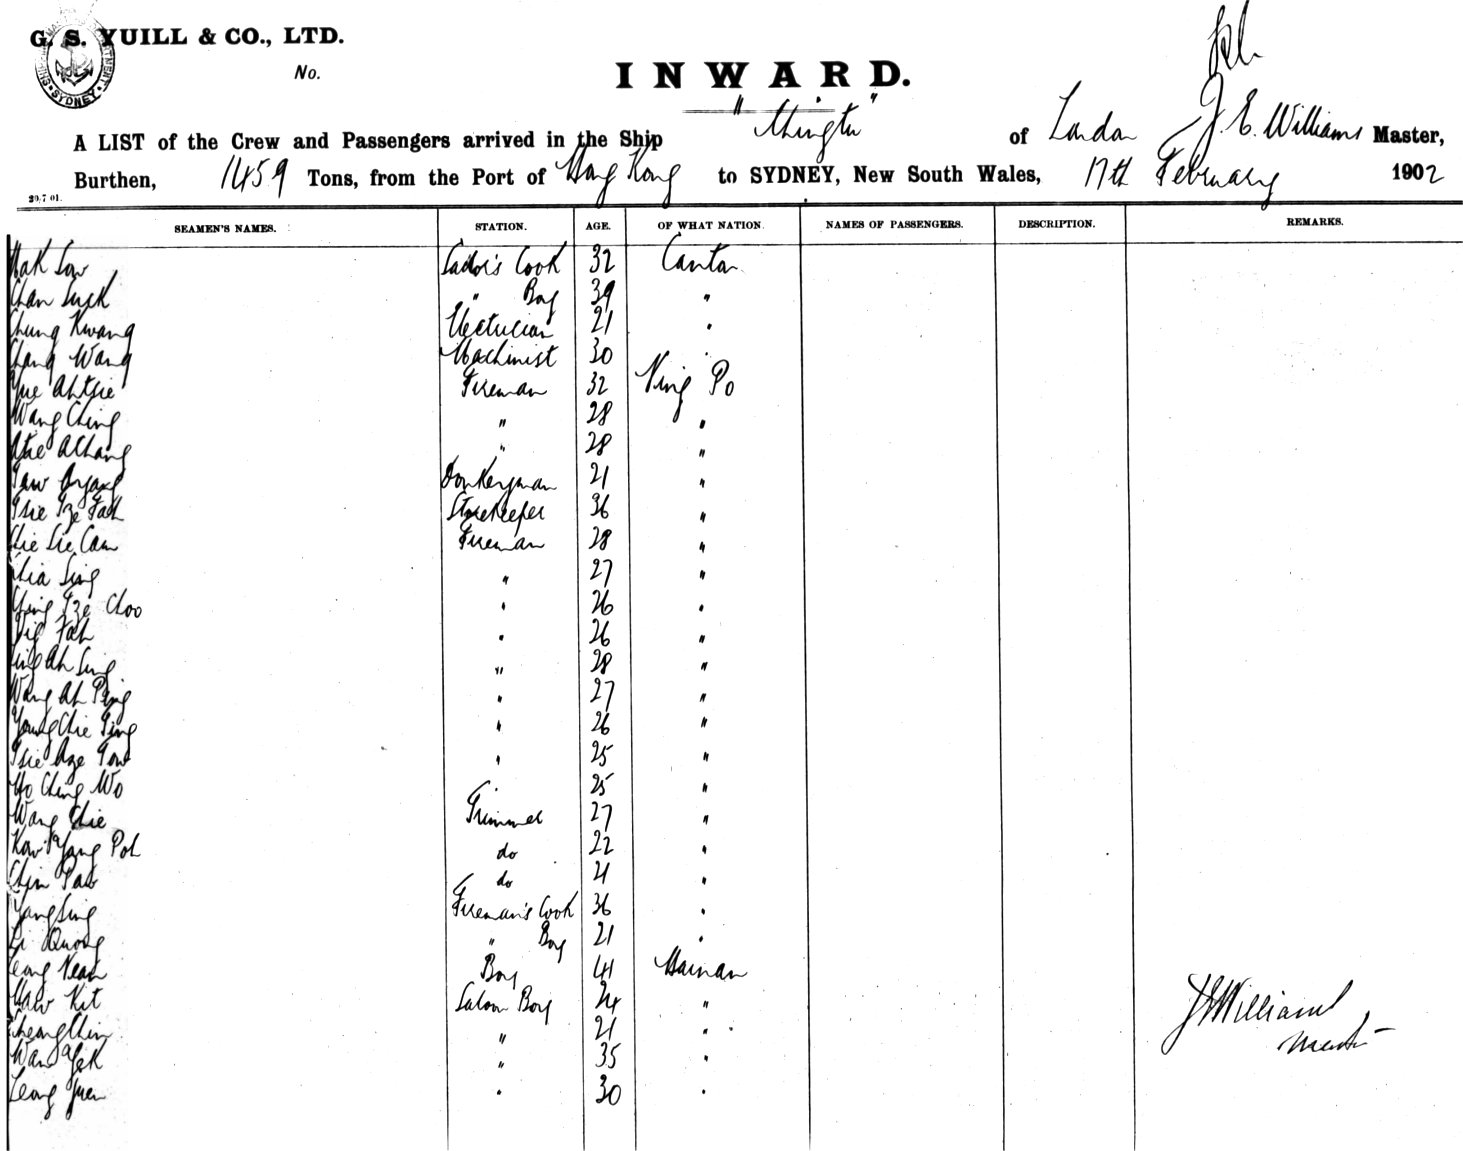 G. S. YUILL & CO., LTD.
No.
SYDNEY
INWARD.
A LIST of the Crew and Passengers arrived in the Ship "Chingtu" of London J. E. Williams Master,
Burthen, 1459 Tons, from the Port of Hong Kong to SYDNEY, New South Wales, 17th February 1902
20.7 01.
SEAMEN'S NAMES. STATION. AGE. OF WHAT NATION. NAMES OF PASSENGERS. DESCRIPTION. REMARKS.
Mak Sow Sailor's Cook 32 Canton
Chan Suck " Boy 39 "
Chung Kwang Electrician 21 "
Chang Wang Machinist 30 "
Yue Ahtsie Fireman 32 Ning Po
Wang Ching " 28 "
Atse Achang " 28 "
Donkeyman 21 "
Tsie Tze Fah Storekeeper 36 "
Chie Sie Cam Fireman 28 "
Chia Sing " 27 "
Ching Tze Choo " 26 "
Fah " 26 "
Ah Sing " 28 "
Wang Ah Ping " 27 "
Young Chie Ping " 26 "
Tsie " 25 "
Ho Ching Wo " 25 "
Wang Chie Trimmer 27 "
Kow Yang Poh do 22 "
Chin Pau do 21 "
Yang Sing Fireman's Cook 36 "
Li Quong " Boy 21 "
Leong Kean Boy 41 Hainan
Haw Kit Saloon Boy 24 "
Cheong Chin " 21 "
Wan Yek " 35 "
Leong Yuen " 30 "
J E Williams
Master